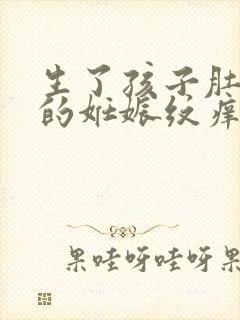 生了孩子肚
的妊娠纹痒
果哇呀哇呀果